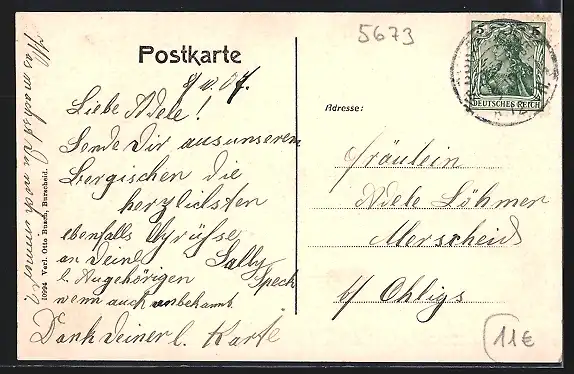 5673
Postkarte
8/10.07.
Liebe Adele!
Sende Dir aus unserem
Bergischen die
herzlichsten
ebenfalls Grüsse
an Deine Sally
l. Angehörigen Speck
wenn auch unbekannt.
Dank Deiner l. Karte
Was machst Du noch immer?
10994 Verl. Otto Busch, Burscheid.
Adresse:
Fräulein
Adele Löhmer
Merscheid
b/ Ohligs
5 5
DEUTSCHES REICH
11€